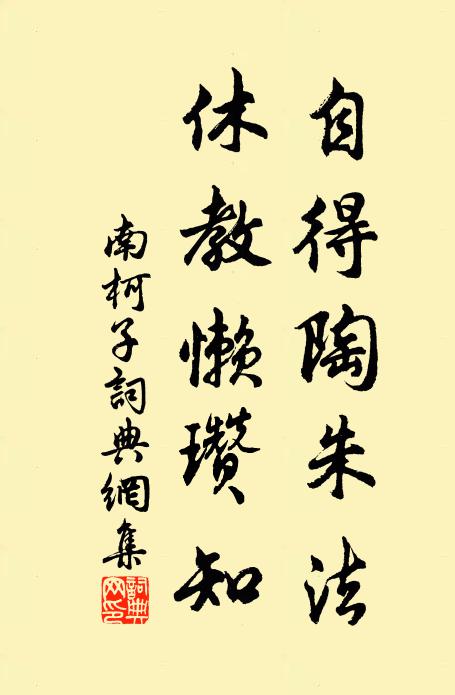 自得陶朱法
休教懒瓒知
南柯子詞典網集
詞典网印